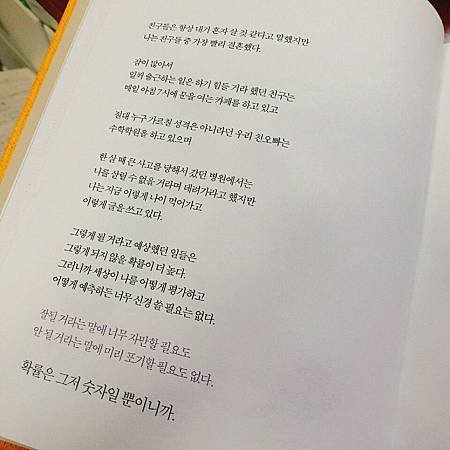 친구들은 항상 내가 혼자 살 것 같다고 말했지만
나는 친구들 중 가장 빨리 결혼했다.
잠이 많아서
일찍 출근하는 일은 하기 힘들 거라 했던 친구는
매일 아침 7시에 문을 여는 카페를 하고 있고
절대 누구 가르칠 성격은 아니라던 우리 친오빠는
수학학원을 하고 있으며
한 살 때 큰 사고를 당해서 갔던 병원에서는
나를 살릴 수 없을 거라며 데려가라고 했지만
나는 지금 이렇게 나이 먹어가고
이렇게 글을 쓰고 있다.
그렇게 될 거라고 예상했던 일들은
그렇게 되지 않을 확률이 더 높다.
그러니까 세상이 나를 어떻게 평가하고
어떻게 예측하든 너무 신경 쓸 필요는 없다.
잘될 거라는 말에 너무 자만할 필요도
안 될 거라는 말에 미리 포기할 필요도 없다.
확률은 그저 숫자일 뿐이니까.